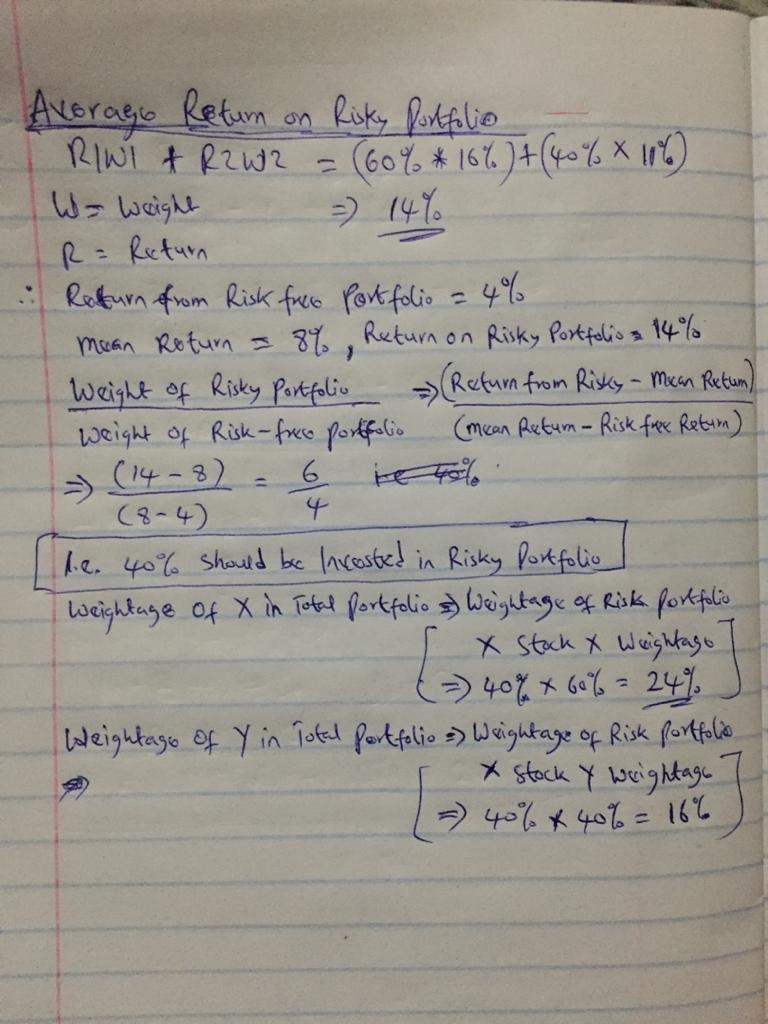 Average Return on Risky Portfolio
R1W1 + R2W2 = (60% * 16%) + (40% X 11%)
W = Weight => 14%
R = Return
∴ Return from Risk free Portfolio = 4%
mean Return = 8%, Return on Risky Portfolio = 14%
Weight of Risky Portfolio => (Return from Risky - Mean Return)
Weight of Risk-free portfolio (mean Return - Risk free Return)
=> (14 - 8) = 6 ie 40%
(8-4) 4
I.e. 40% should be Invested in Risky Portfolio
Weightage of X in Total Portfolio => Weightage of Risk portfolio
X Stock X Weightage
=> 40% X 60% = 24%
Weightage of Y in Total Portfolio => Weightage of Risk Portfolio
=> X Stock Y Weightage
=> 40% X 40% = 16%